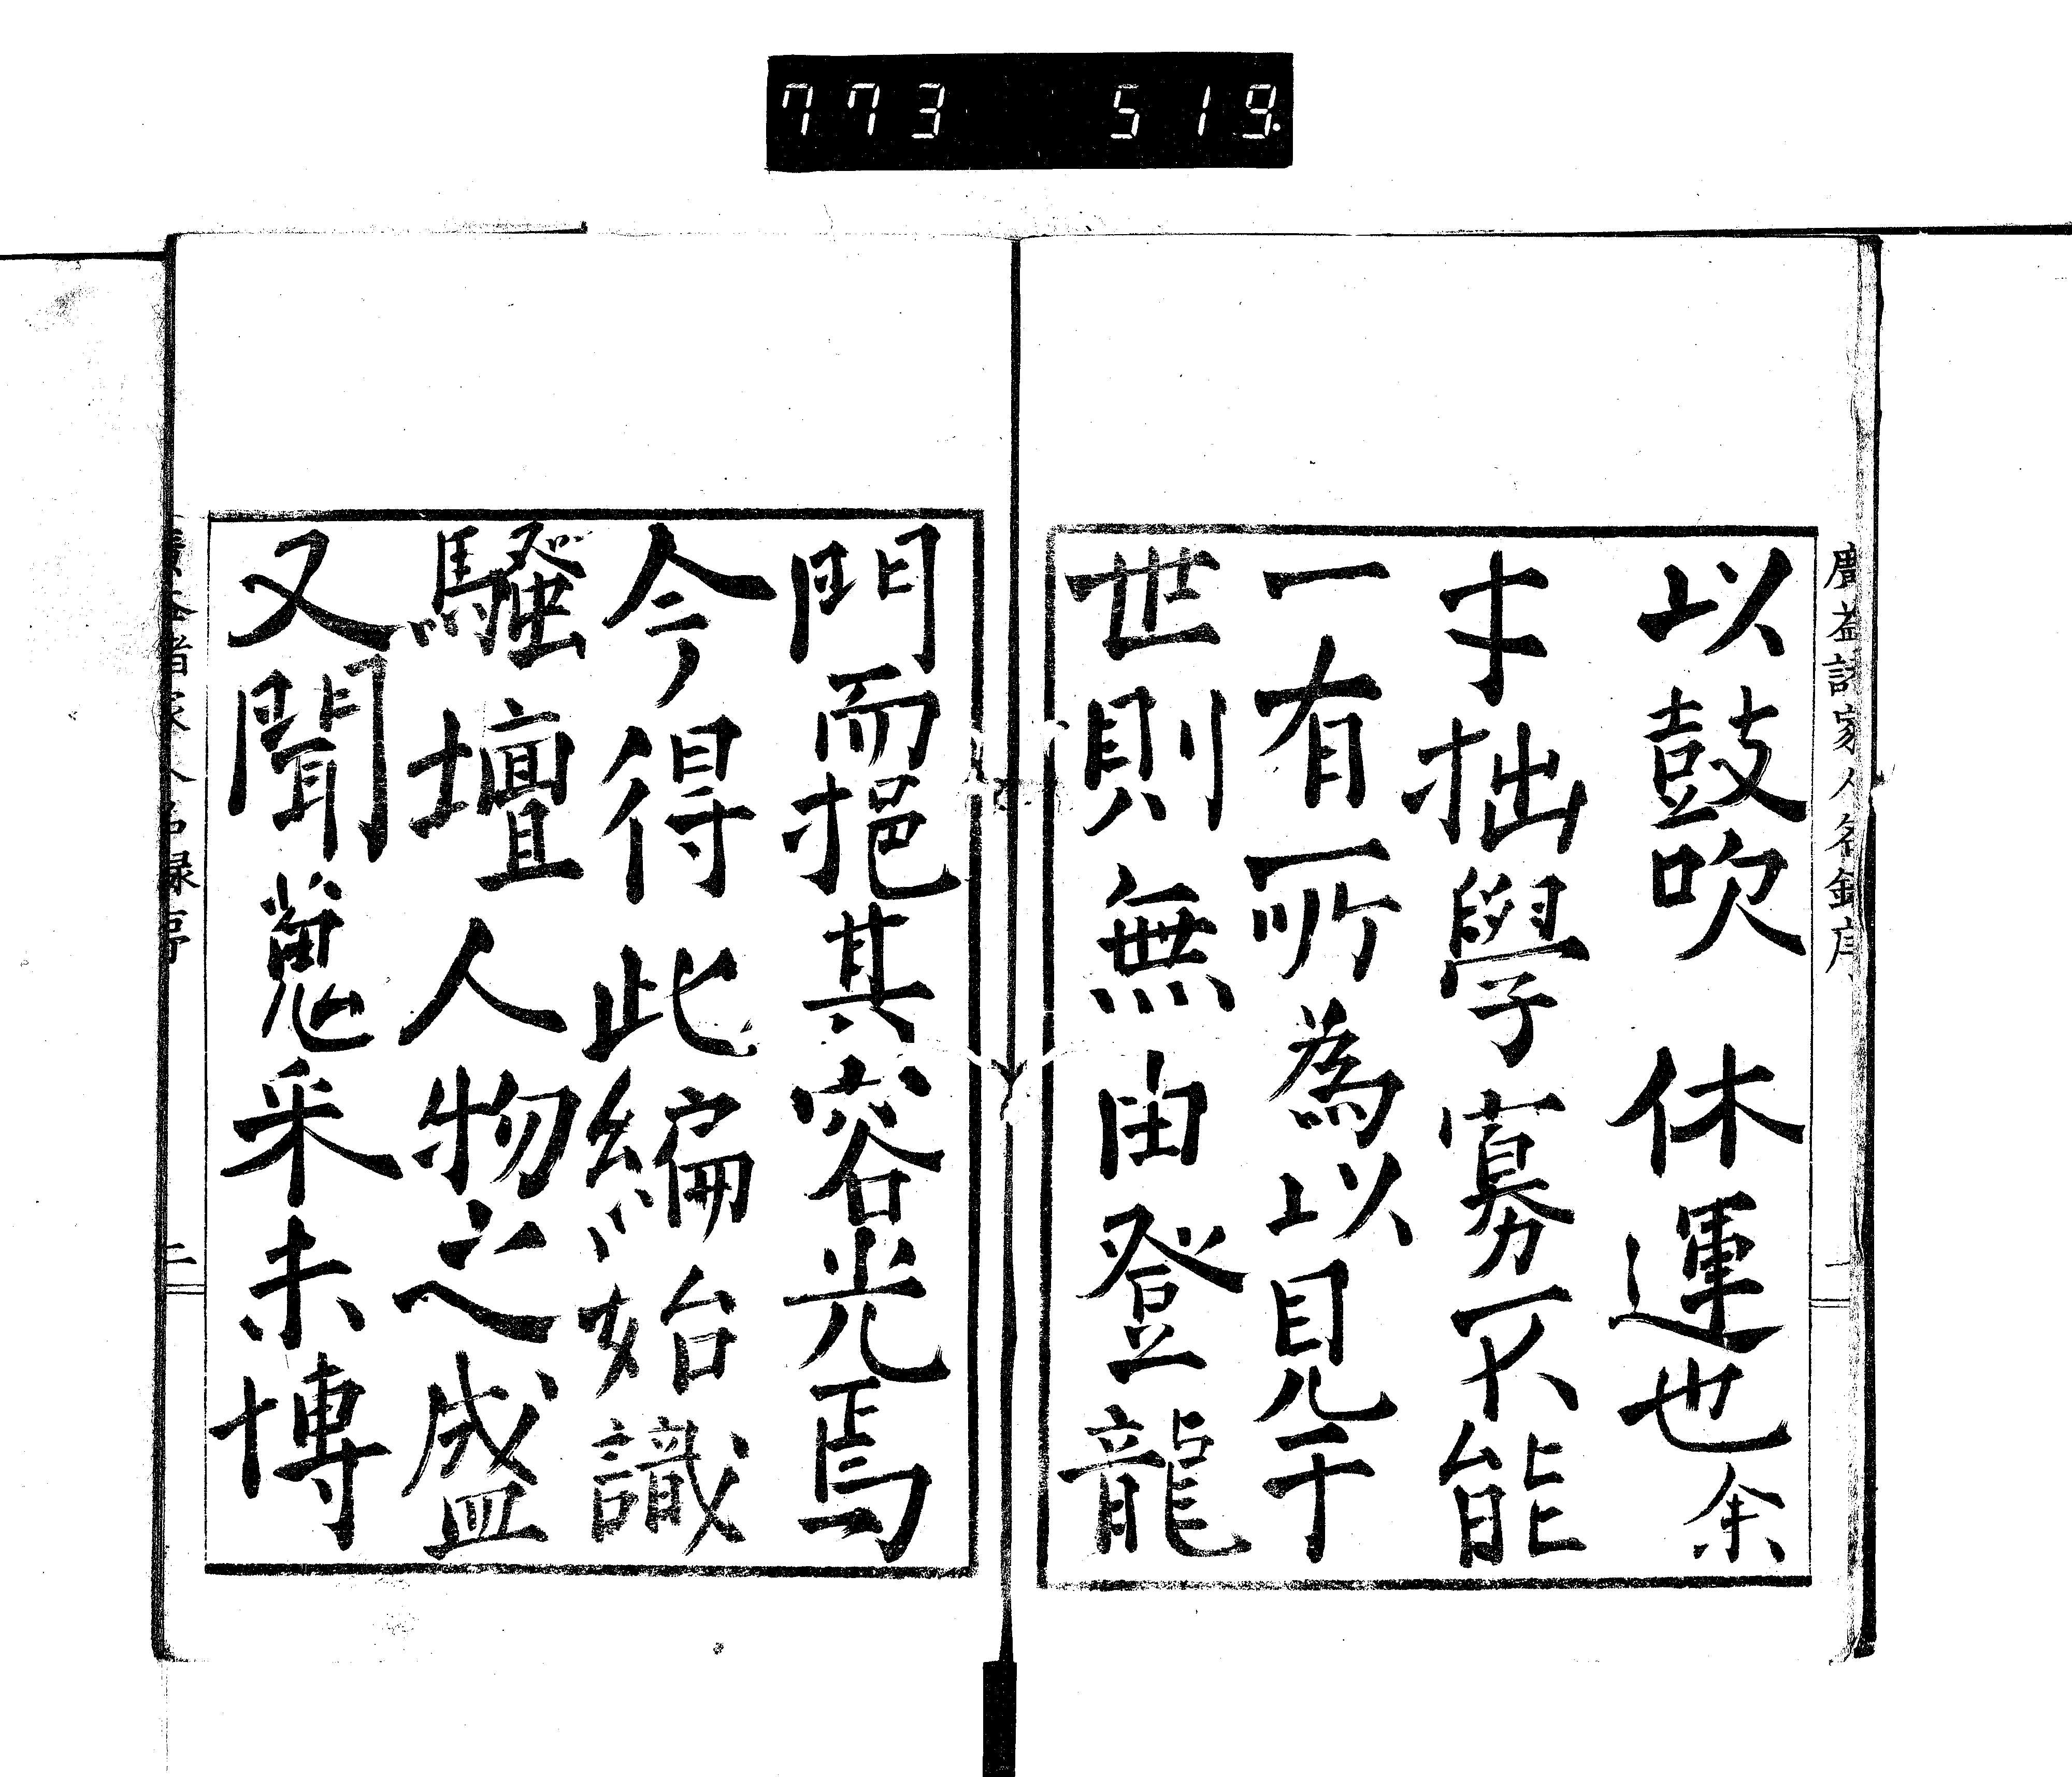 773 519.
廣益諸家人名錄序
一
以鼓吹　休運也余
才拙學寡不能
一有所為以見于
世則無由登龍
門而挹其容光焉
今得此編始識
騷壇人物之盛
又聞蒐采未博
二